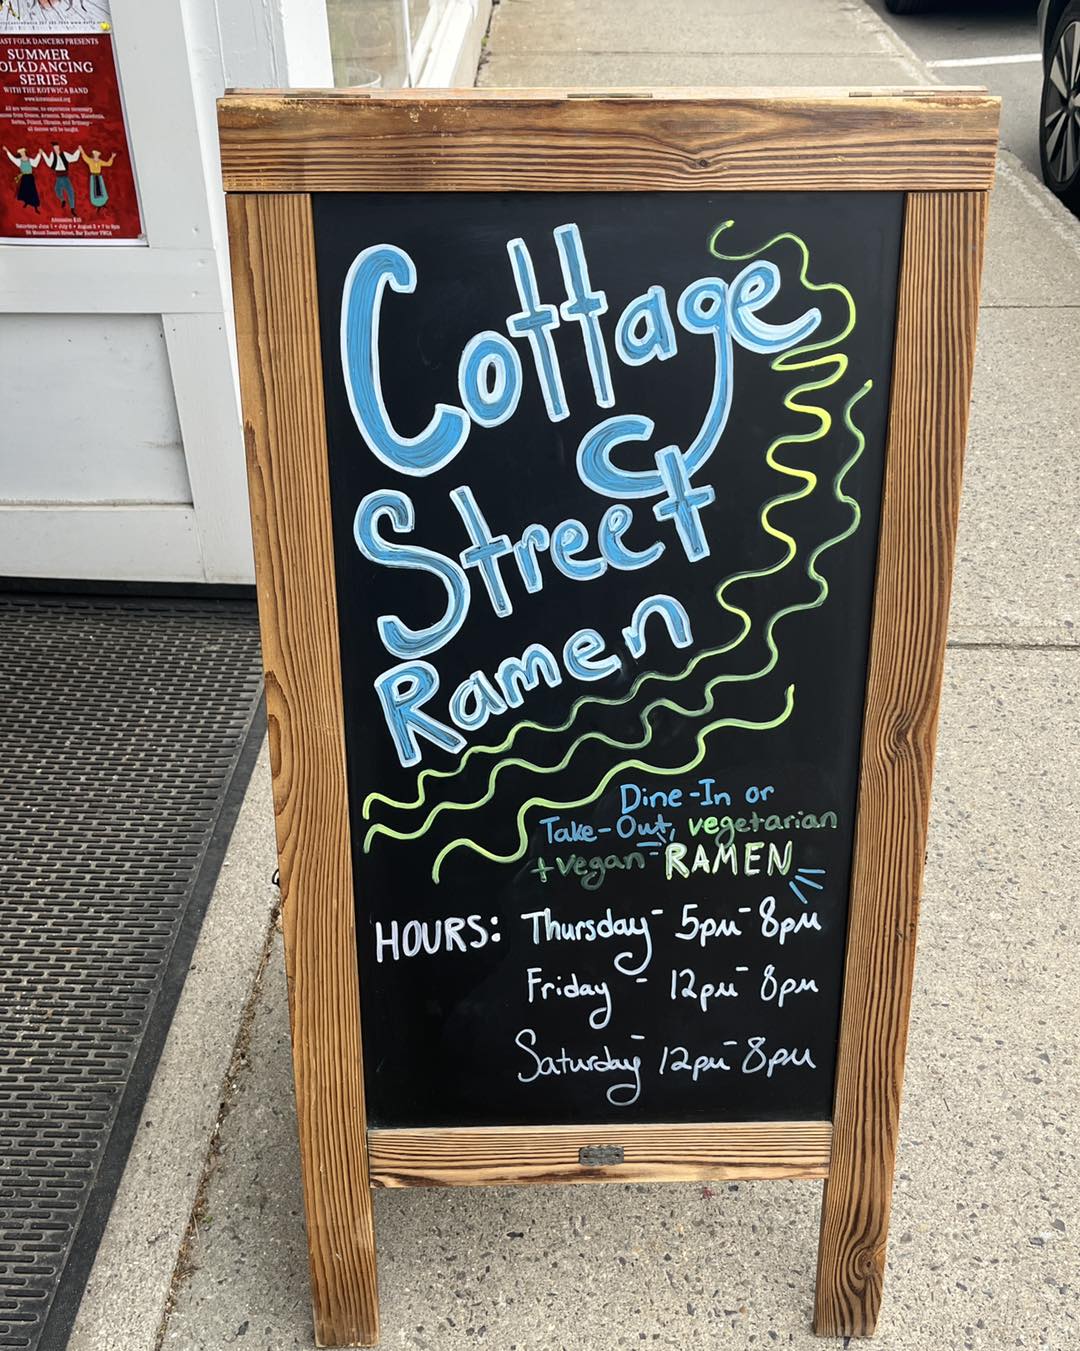 SUMMER
SERIES
WITH THE KOTWICA BAND
Cottage
Street
Ramen
Dine-In or
Take-Out, vegetarian
+vegan - RAMEN
HOURS: Thursday - 5pm - 8pm
Friday - 12pm - 8pm
Saturday - 12pm - 8pm